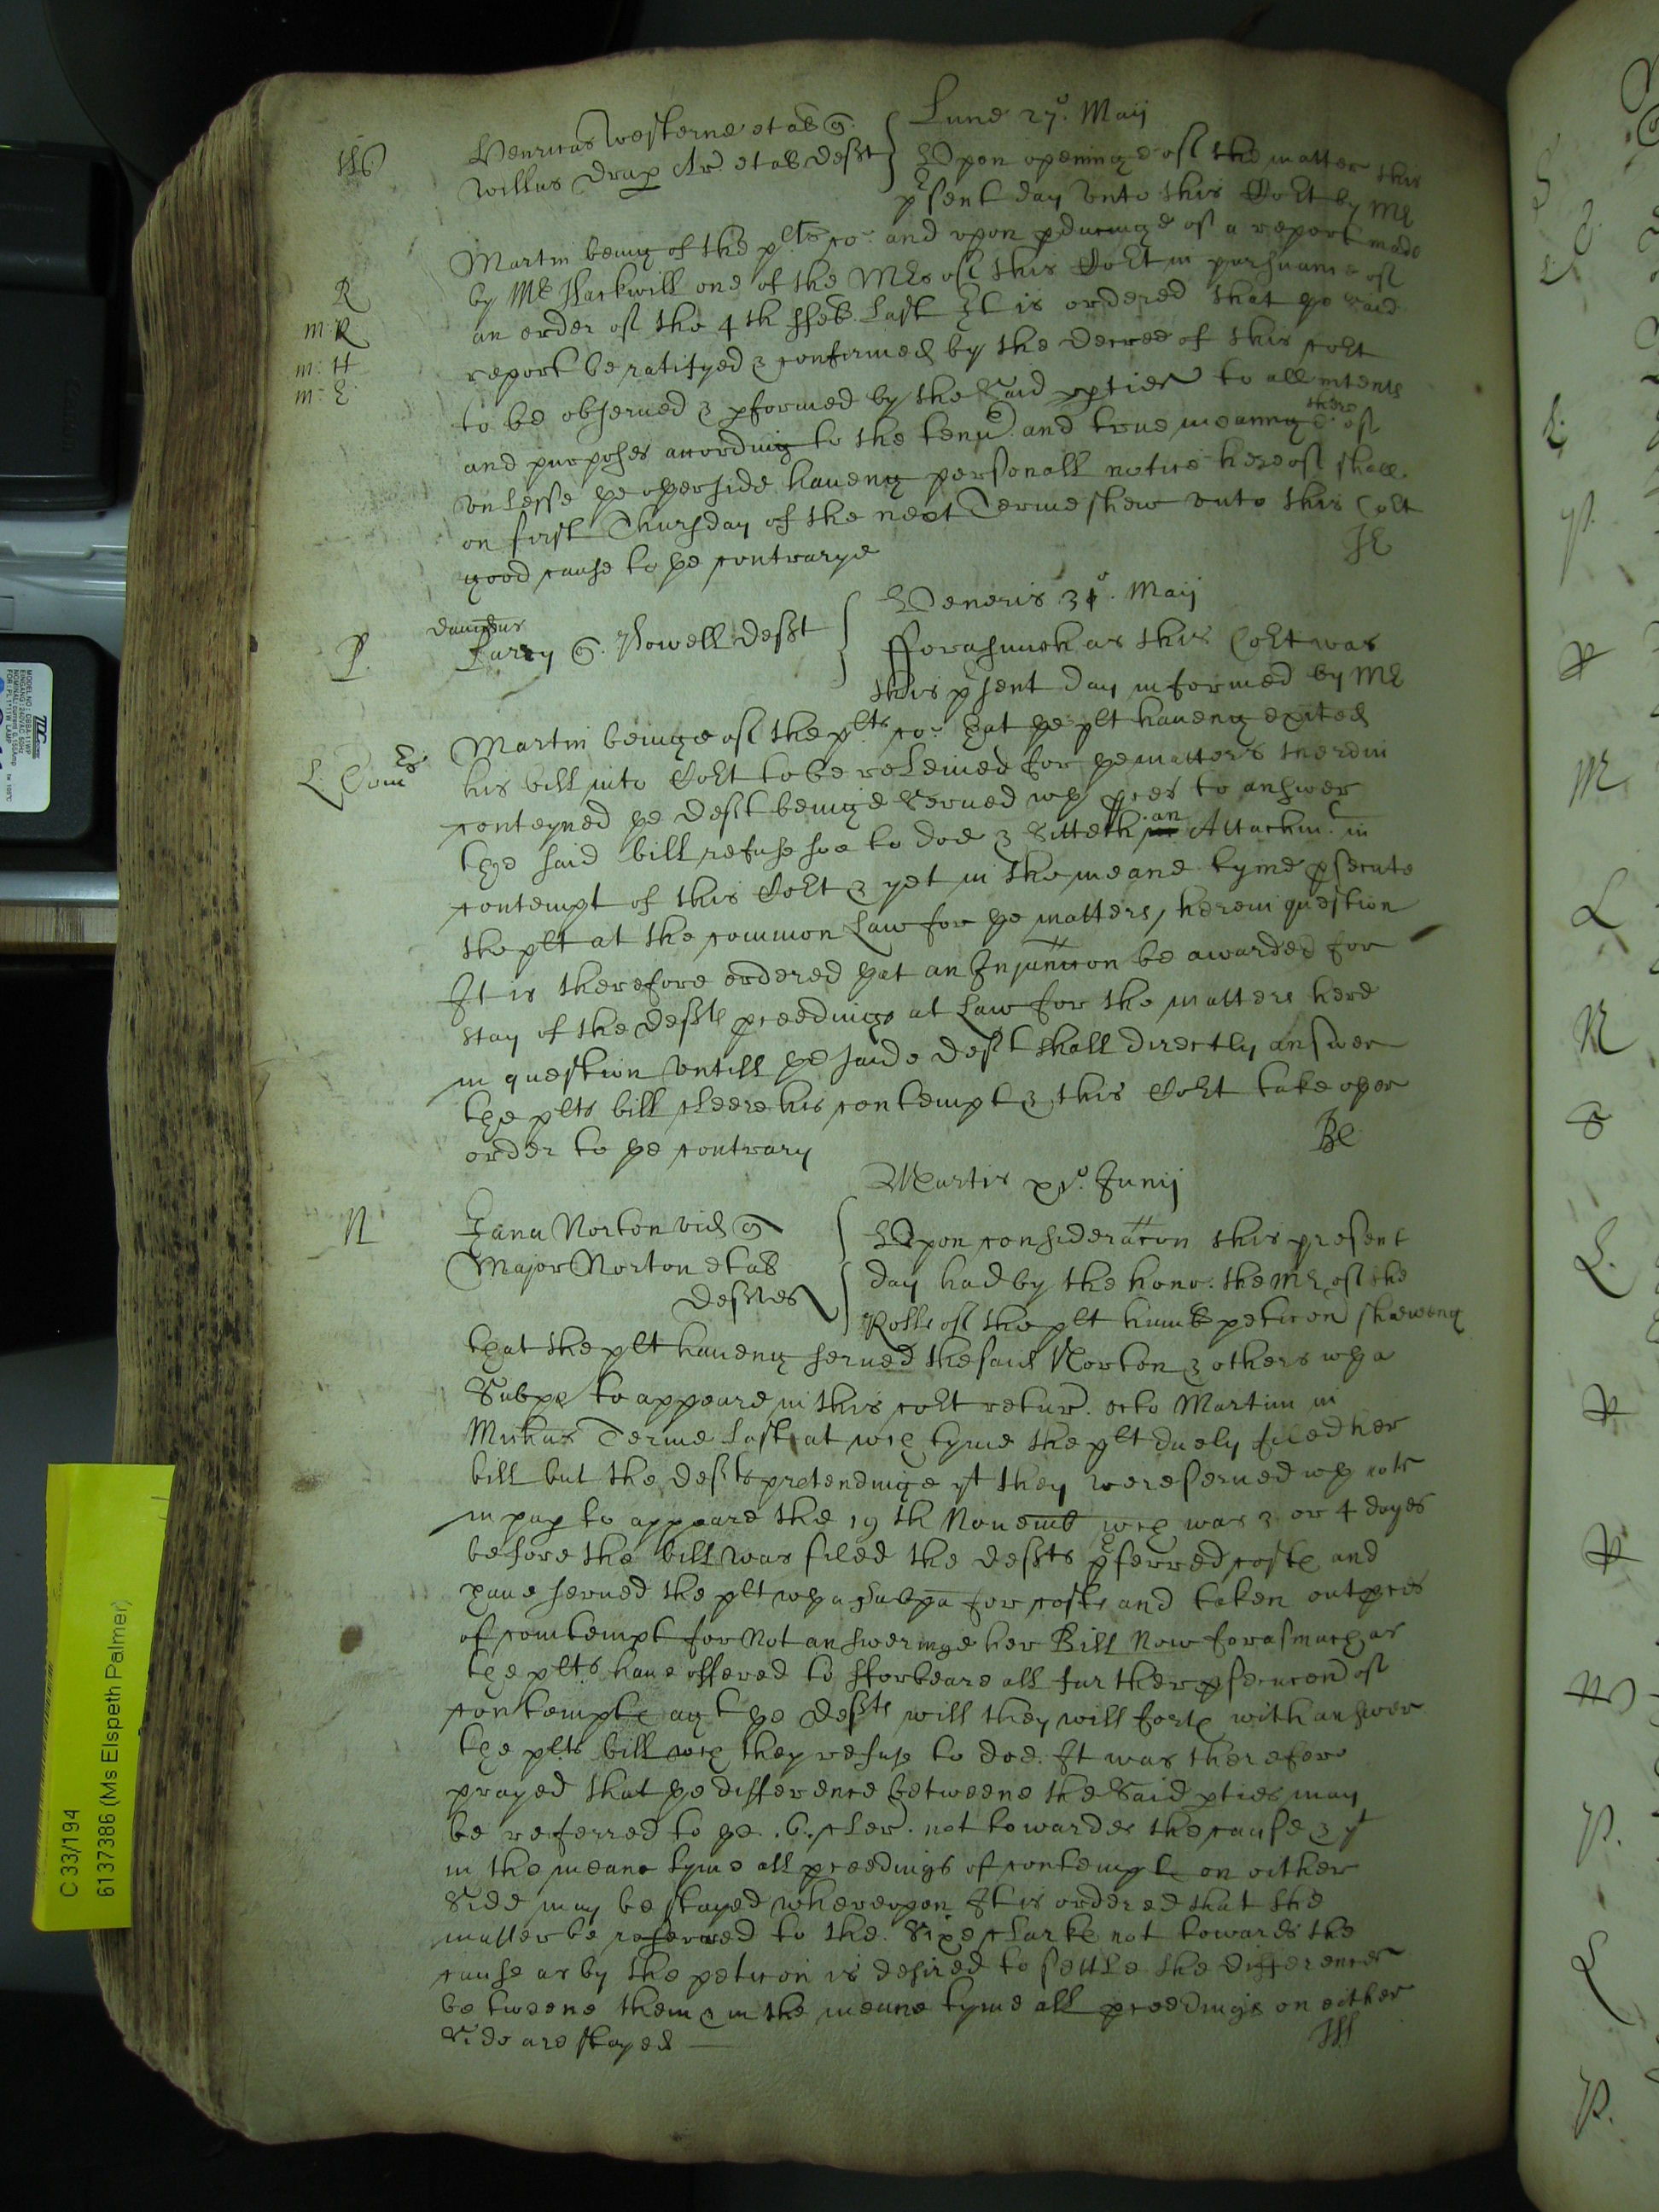 Lune 27o. Maij
Henricus Westerne et al q.
Willus Drap Ar. et al Defft
Upon openinge of the matter this
psent day unto this Cort by Mr
Martin being of the plts co: and upon pducinge of a report made
by Mr Hackwill one of the Mrs of this Cort in pursuance of
an order of the 4th ffeb. last It is ordered that ye said
R
m: R
report be ratifyed & confirmed by the decree of this cort
m: H
m: E
to be observed & pformed by the said pties to all intents
and purposes according to the tenor and true meaninge thereof
unlesse ye other side haveng personall notice hereof shall
on first Thursday of the next Terme shew unto this Cort
good cause to ye contrarye
Veneris 31o. Maij
P.
Parry q. Powell Defft
fforasmuch as this Cort was
this psent day informed by Mr
Martin beinge of the plts co: yat ye plt haveng exited
his bill into Cort to be releived for ye matters therein
conteyned ye deft beinge served wth pces to answer
the said bill refuse soe to doe & sitteth an Attachmt in
contempt of this Cort & yet in the meane tyme psecute
the plt at the common Law for ye matters herein question
It is therefore ordered yat an Injunction be awarded for
stay of the deffts pceedings at Law for the matters here
in question untill ye saide deft shall directly answer
the plts bill cleere his contempt & this Cort take other
order to ye contrary
Martis Junij
N
Jana Norton vid q
Major Norton et al
Defftes
Upon consideracon this present
day had by the hono. the Mr of the
Rolls of the plt humb peticon sheweng
that the plt haveng served the said Norton & others wth a
Subpe to appeare in this cort retur. octo Martini in
Michas Terme last at wch tyme the plt duely filed her
bill but the defts pretendinge yt they were served wth
to appeare the 19th Novemb wch was 3 or 4 dayes
before the bill was filed the deffts pferred costs and
have served the plt wth a Subpa for costs and taken out pces
of comtempt for not answeringe her Bill Now forasmuch as
the plts have offered to fforbeare all further psecucon of
contempts agt ye deffts will they will forth with answer
the plts bill wch they refuse to doe. It was therefore
prayed that ye difference betweene the said pties may
be referred to ye .6. cler. not towardes the cause & yt
in the meane tyme all pceedings of contempt on either
side may be stayed whereupon It is ordered that the
matter be referred to the Sixe clarke not towards the
cause as by the peticon is desired to settle the differences
betweene them & in the meane tyme all pceedings on either
side are stayed
C 33/194
6137386 (Ms Elspeth Palmer)